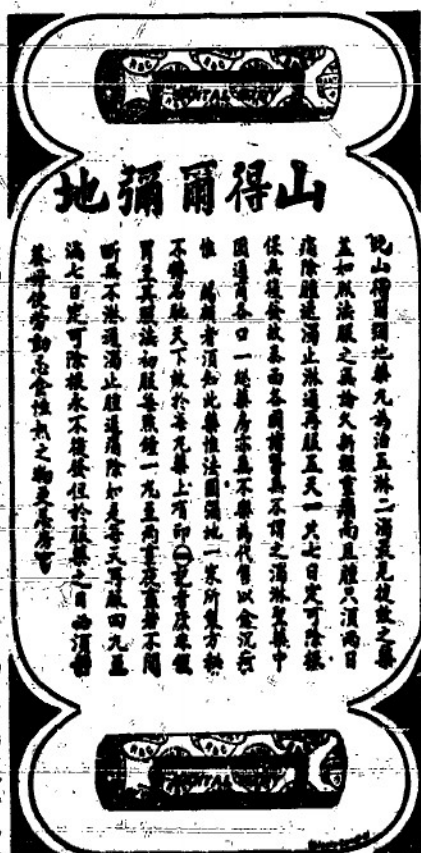 山得爾彌地
此山得爾彌地藥丸為治五淋二濁最見捷效之藥
蓋如照法服之無論久新輕重痛而且腫只須兩日
痛除腫退濁止淋通再服五天一共七日定可除根
保無復發故泰西各國諸醫無不謂之濁淋聖藥中
國通商各口一經藥房亦無不樂為代售以全沉疴
惟 賜顧者須知此藥惟法國彌地一家所製方
不特名馳天下故於每丸藥上有印 記者
冒至其服法初服每點鐘一丸至 重 重者不間
斷無不淋通濁止腫退痛除如是每天再服四丸至
滿七日定可除根永不復發但於服藥之日必須靜
養毋使勞動忌食性熱之物更忌房事